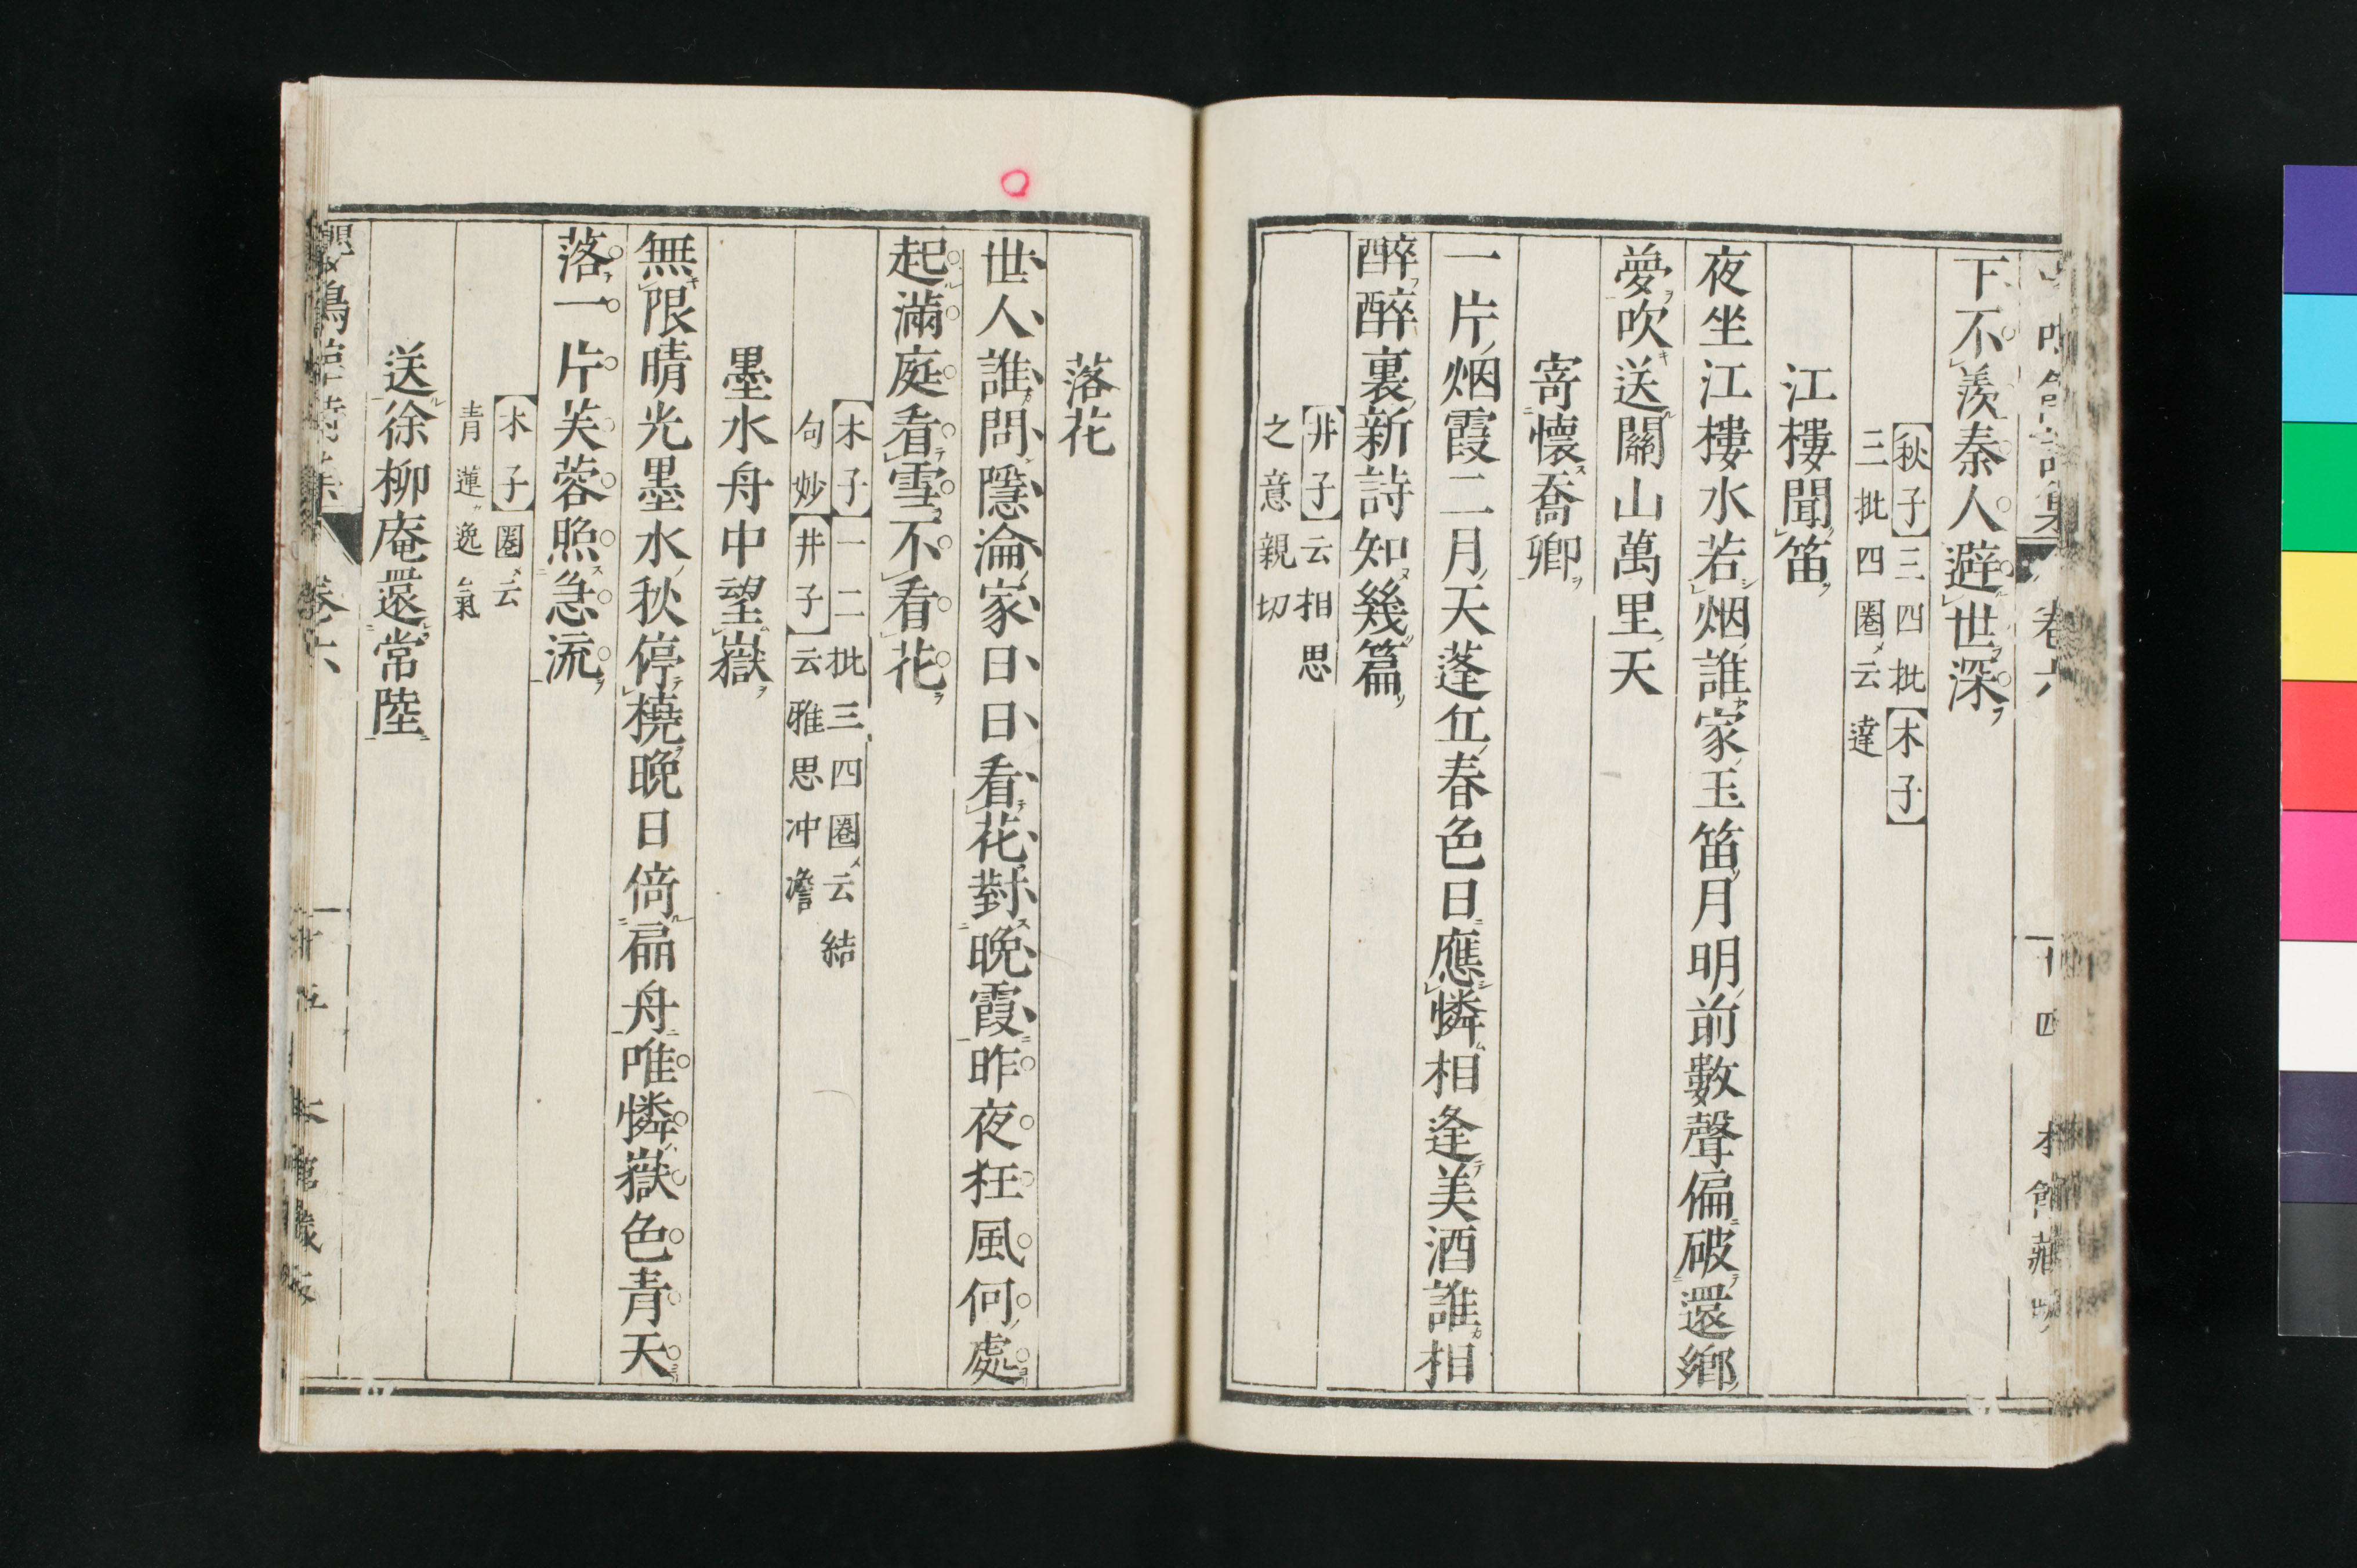 下不羨秦人避世深
【秋子】三四批【木子】
三批四圈云達
江樓聞笛
夜坐江樓水若烟誰家玉笛月明前數聲偏破還鄉
夢吹送關山萬里天
寄懷喬卿
一片烟霞二月天蓬丘春色日應憐相逢美酒誰相
醉醉裏新詩知幾篇
【井子】云相思
之意親切
卷六
十四
本館藏
落花
世人誰問隱淪家日日看花對晚霞昨夜狂風何處
起滿庭看雪不看花
【木子】一二批三四圈云結
句妙【井子】云雅思冲澹
墨水舟中望嶽
無限晴光墨水秋停橈晚日倚扁舟唯憐嶽色青天
落一片芙蓉照急流
【木子】圈云
青蓮逸氣
送徐柳庵還常陸
卷六